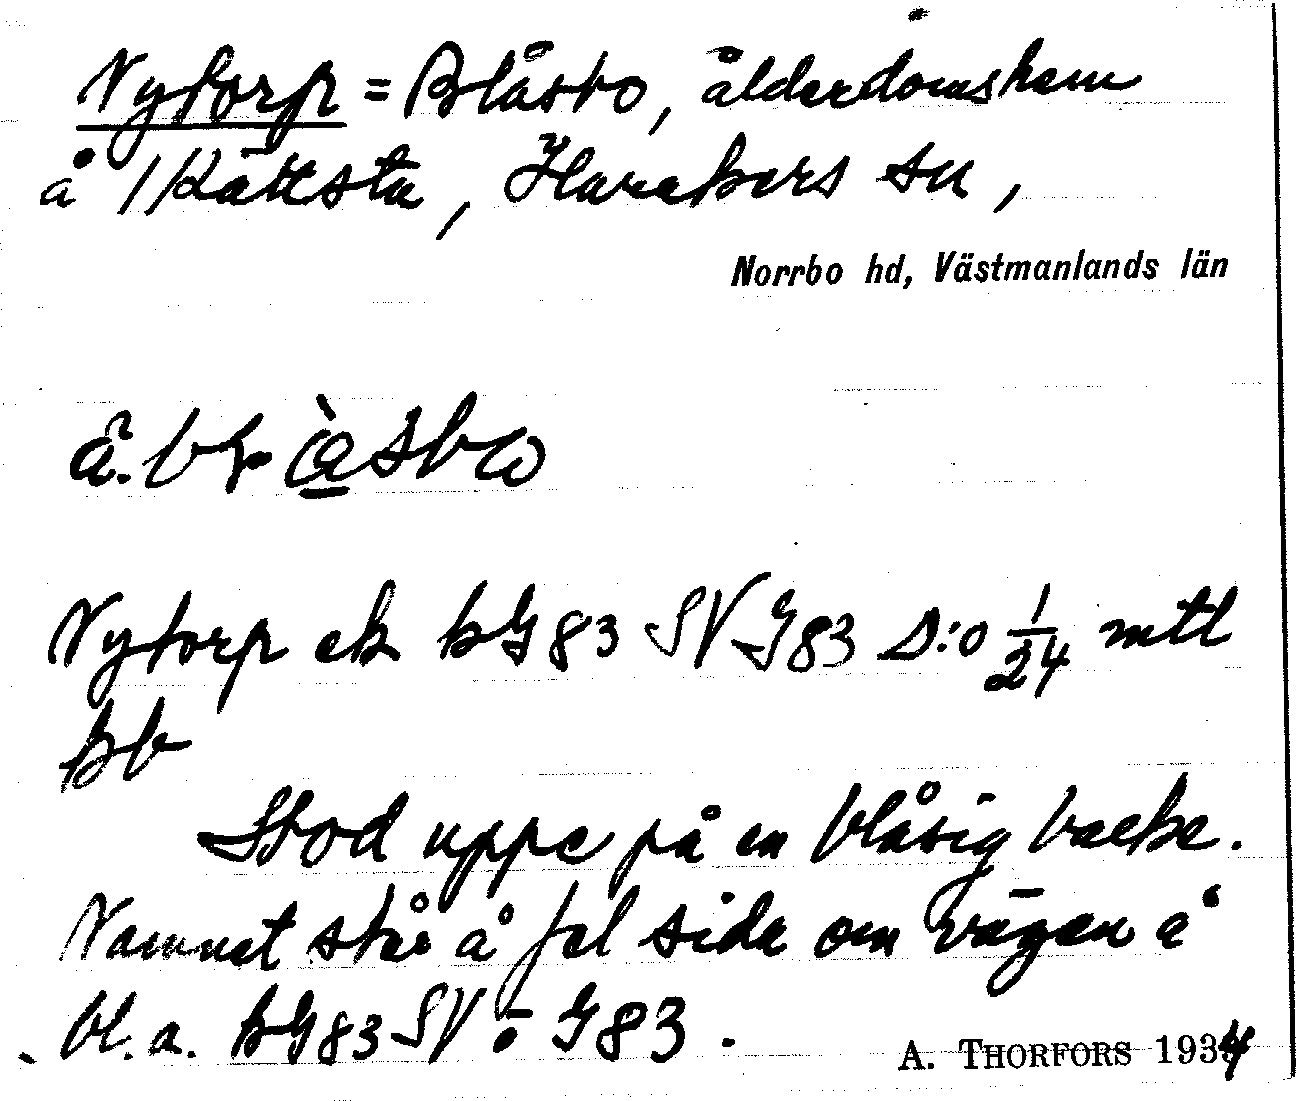 Nytorp = Blåsbo, ålderdomshem
å /Kättsta, Harakers sn,
Norrbo hd, Västmanlands län
å.
Nytorp ek kG83 SV G83 D:o 1/24 mtl
kb
Stod uppe på en blåsig backe.
Namnet står å fel sida om vägen å
bl.a. kG83 SV o G83.
A. THORFORS 1934